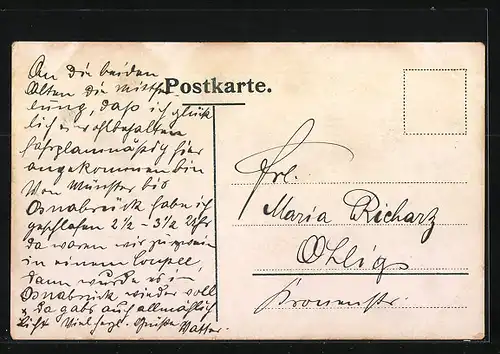 Postkarte.
An die beiden
Alten die Mitthei-
lung, daß ich glück
lich u. wohlbehalten
fahrplanmäßig hier
angekommen bin
Von Münster bis
Osnabrück habe ich
geschlafen 2½ - 3½ Uhr
da waren wir zu zwein
in einem Coupee,
dann wurde es in
Osnabrück wieder voll
u. da gabs auch allmählich
Licht Viel herzl. Grüße Walter.
Frl.
Maria Richarz
Ohligs